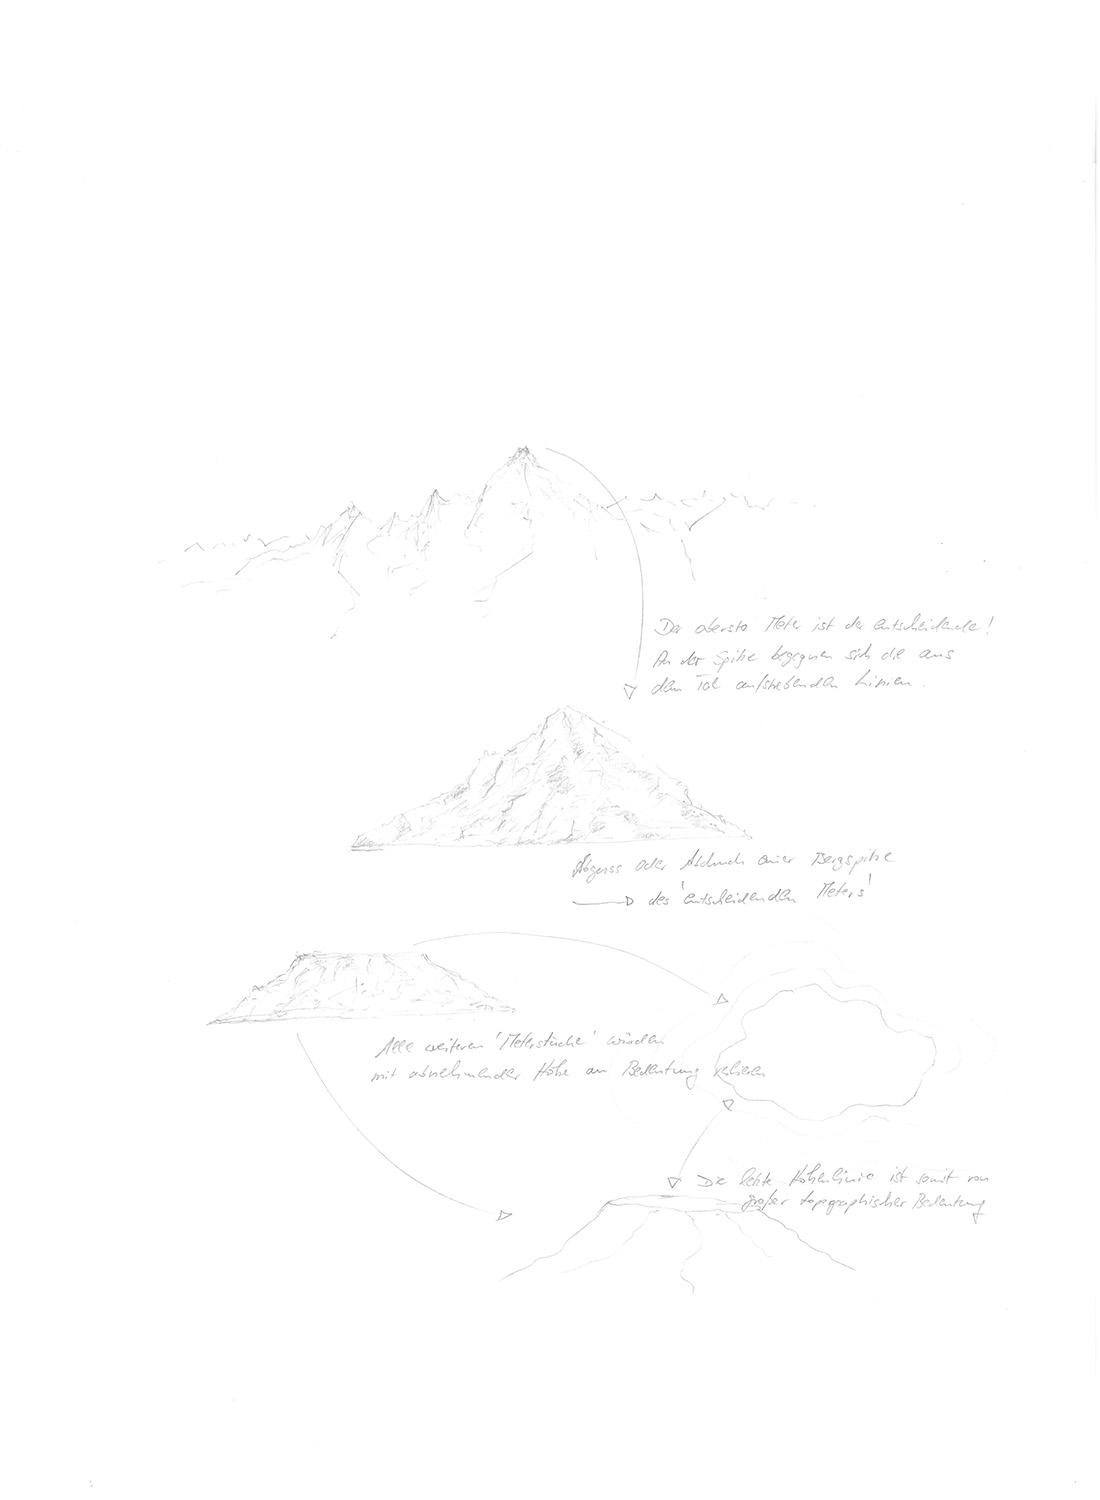 Der oberste Meter ist der entscheidende!
An der Spitze begegnen sich die aus
dem Tal aufstrebenden Linien.
Abguss oder Abdruck einer Bergspitze
des 'entscheidenden Meters'
Alle weiteren 'Meterstücke' würden
mit abnehmender Höhe an Bedeutung verlieren
Die letzte Höhenlinie ist somit von
großer topographischer Bedeutung